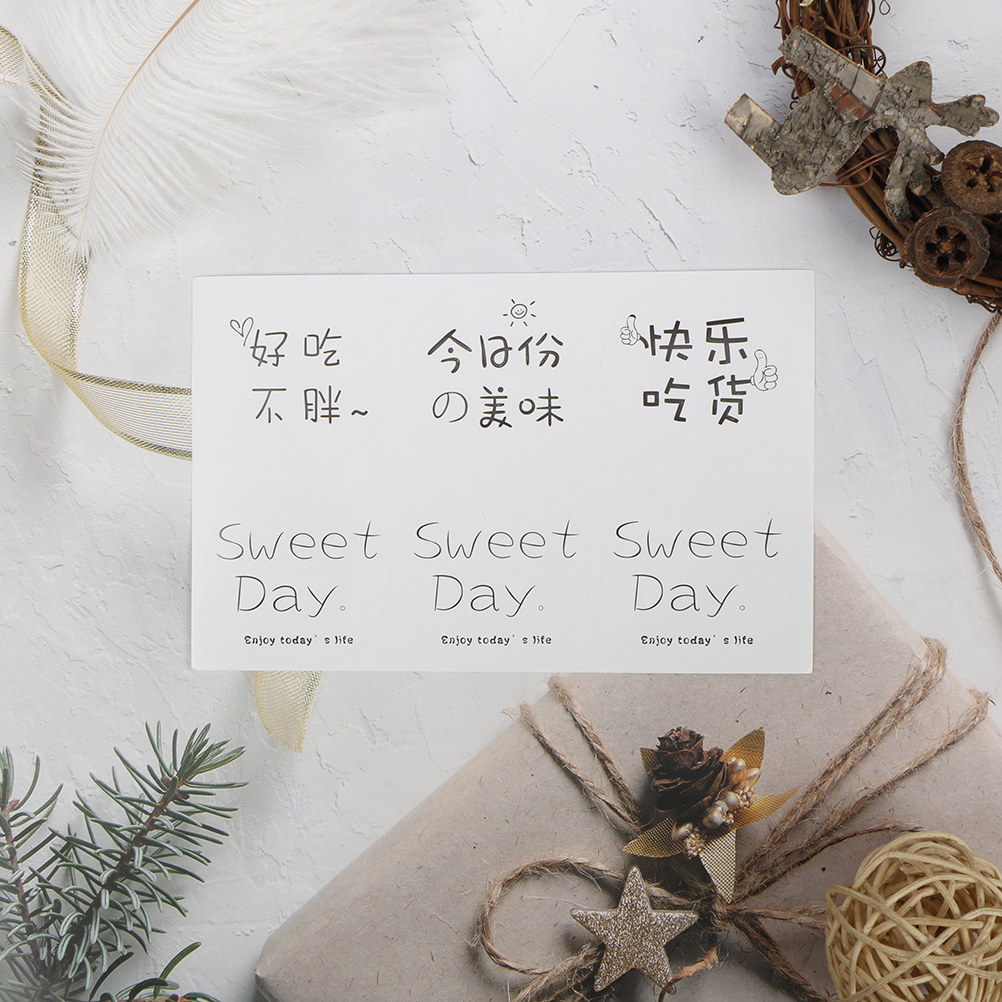 好吃
不胖~
今日份
の美味
快乐
吃货
Sweet
Day。
Enjoy today's life
Sweet
Day。
Enjoy today's life
Sweet
Day。
Enjoy today's life